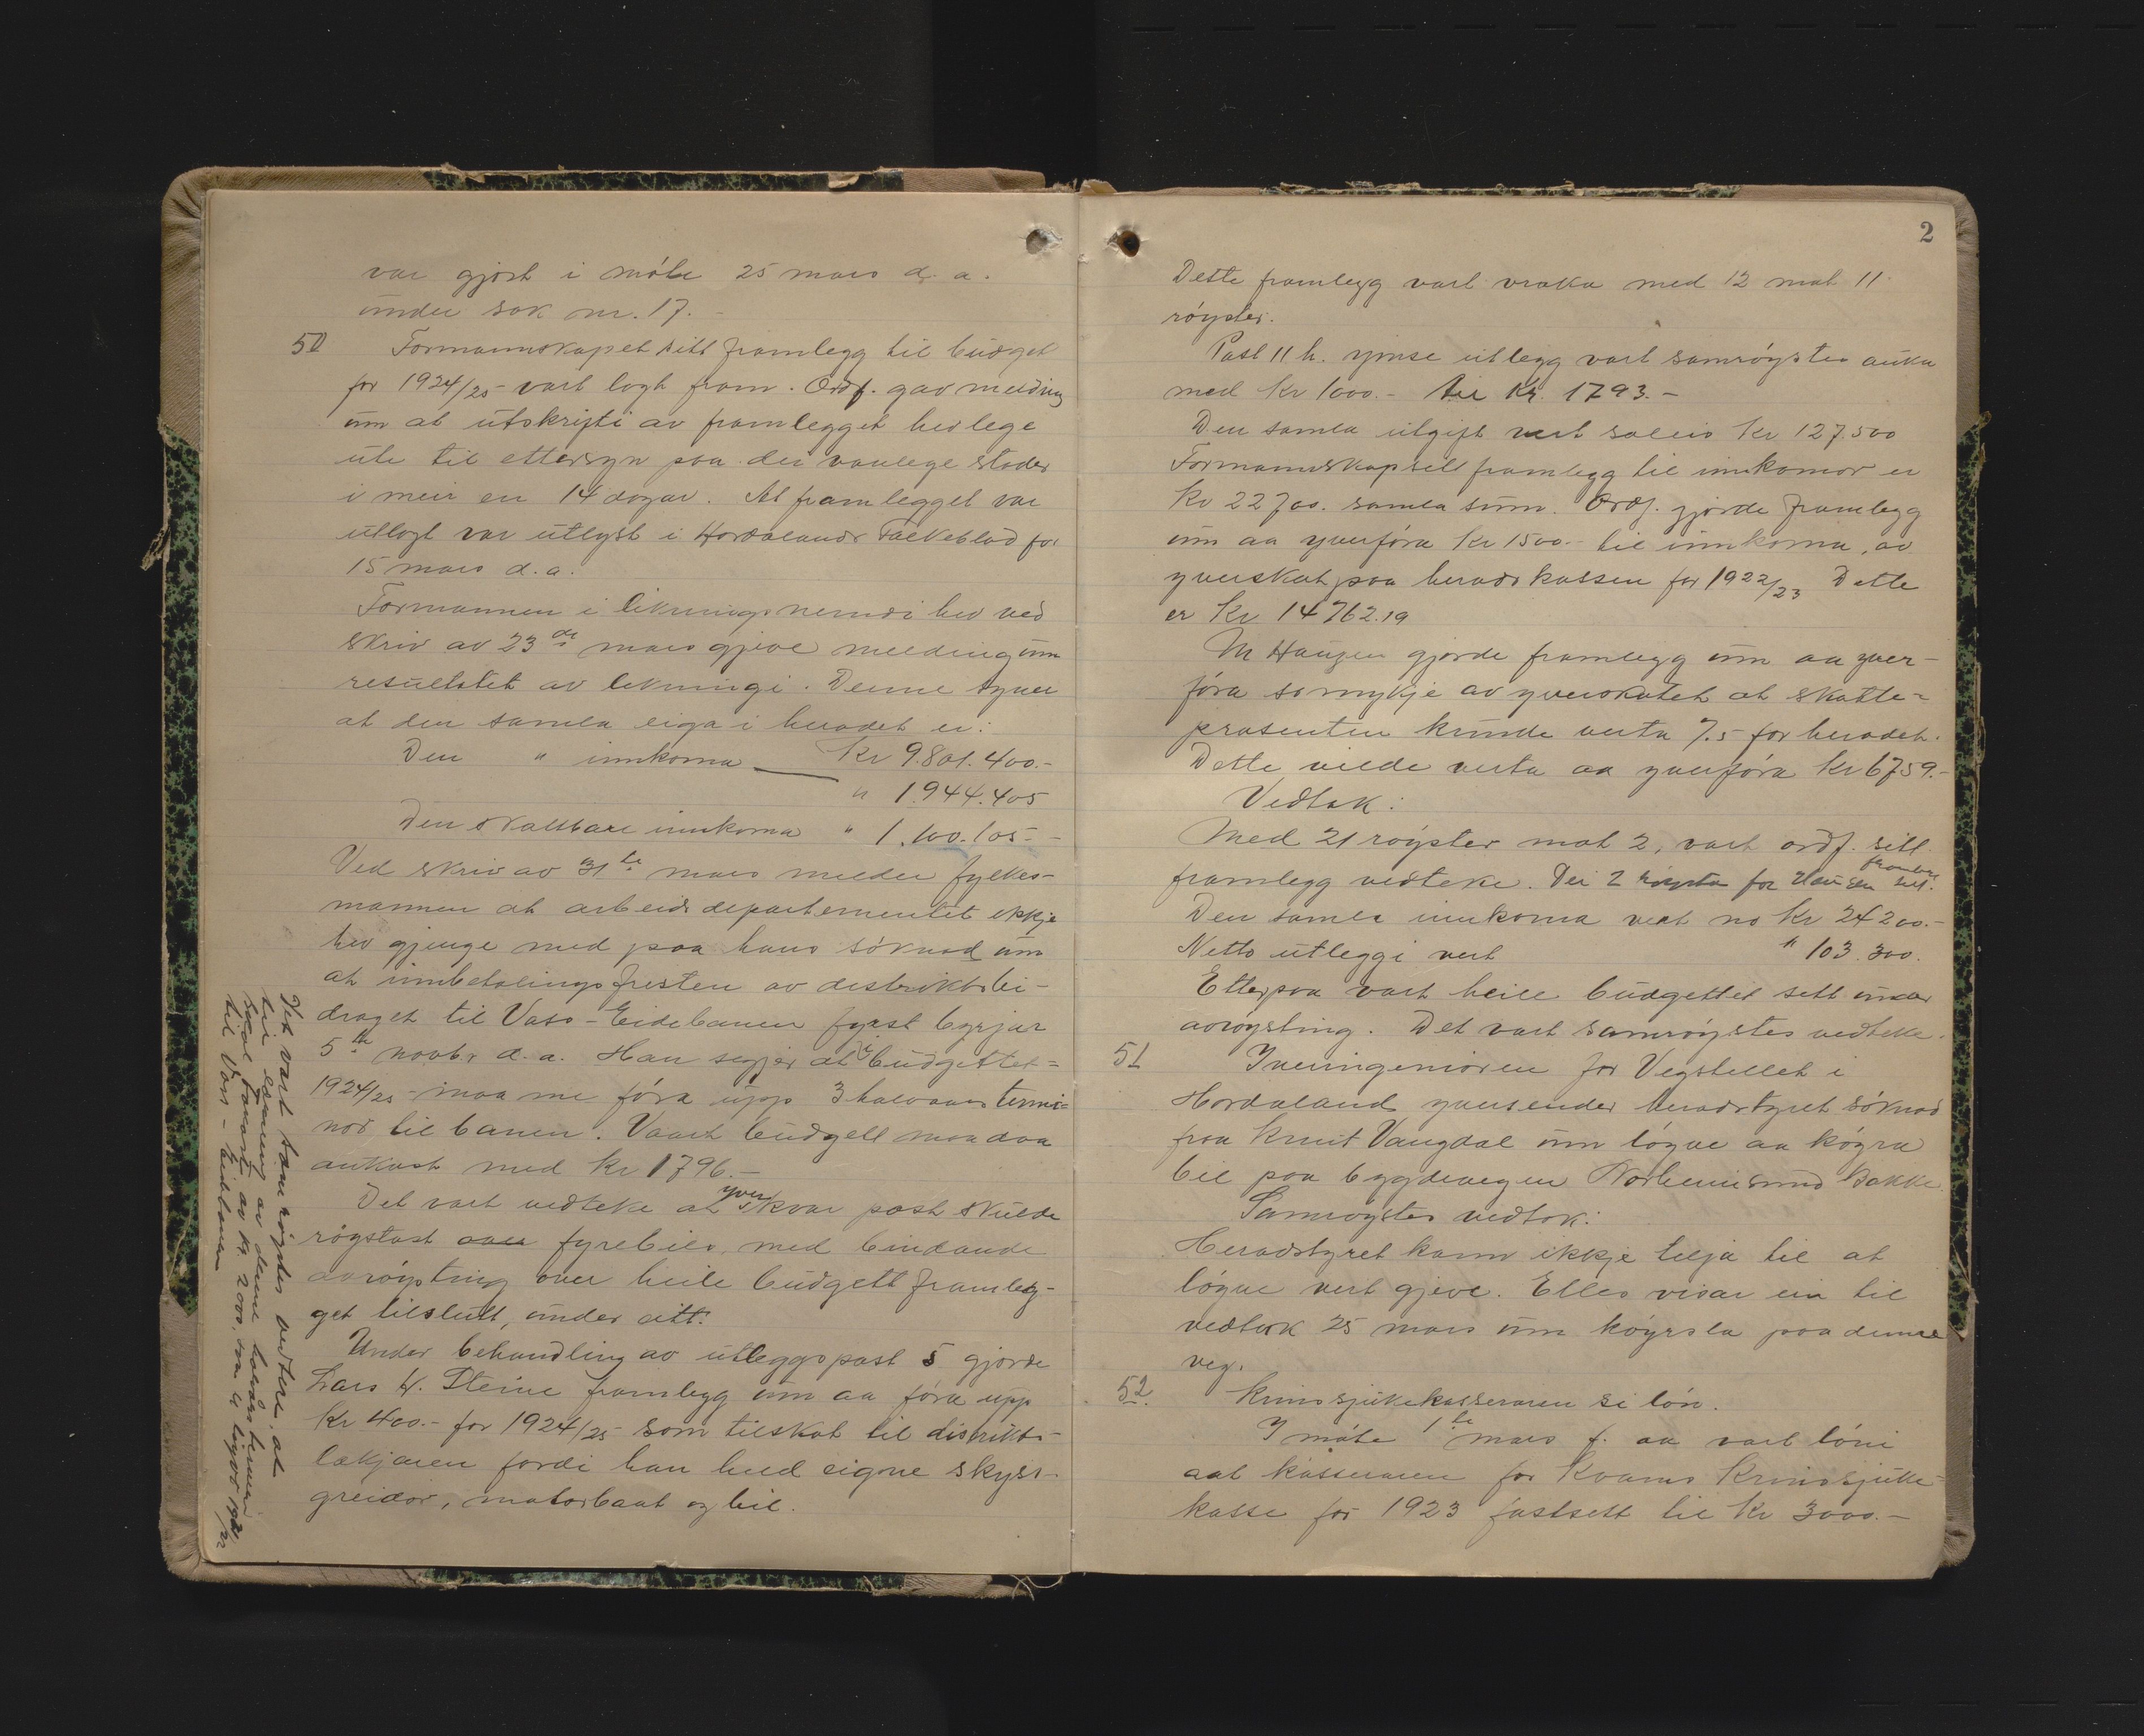 var gjort i móte 25 mars d. a.
under sak nr. 17.
50 Formannskapet sitt framlegg til budget
for 1924/25 vart lagt fram. Ordf. gav melding
um at utskrifti av framlegget hev lege
ute til ettersyn paa dei vanlege stader
i meir en 14 dagar. At framlegget var
utlagt var utlyst i Hordalands Folkeblad for
15 mars d.a.
Formannen i likningsnemdi hev ved
skriv av 23de mars gjeve melding um
resultatet av likningi. Denne syner
at den samla eiga i heradet er:
Den " innkoma Kr 9.801.400.-
" 1.944.405
Den skattbare innkoma " 1.100.105.-
Ved skriv av 31te mars melder fylkes-
mannen at arbeidsdepartementet ikkje
hev gjenge med paa hans sóknad um
at innbetalingsfresten av distriktsbi-
draget til Vass-Eidebanen fyrst byrjar
5te novbr d.a. Han segjer at i budgettet
1924/25 maa me fóra upp 3 halvaars termi-
nar til banen. Vaart budgett maa daa
aukast med kr 1796.-
Det vart vedteke at yver kvar post skulde
róystast fyrebils, med bindande
avróysting over heile budgettframleg-
get tilslutt, under eitt.
Under behandling av utleggspost 5 gjorde
Lars H. Steine framlegg um aa fóra upp
Kr 400.- for 1924/25 som tilskot til distrikts-
lækjaren fordi han held eigne skyss-
greidor, motorbaat og bil.
Det vart samróystes vedteke, at
til dekning av denne halvårs termin
skal av kr 2000, som er lagt 1921/22
til Vass-Eidebanen
2
Dette framlegg vart vraka med 12 mot 11
róyster.
Post 11 h. ymse utlegg vart samróystes auka
med Kr 1000.- til Kr. 1793.-
Den samla utgift vert soleis Kr 127.500
Formannskapsett framlegg til innkomor er
Kr 22700. samla sum. Ordf. gjorde framlegg
um aa yverfóra Kr 1500.- til innkoma, av
yverskot paa heradskassen for 1922/23 Dette
er Kr 14762.19
M Haugen gjorde framlegg um aa yver-
fóra so mykje av yverskotet at skatte-
prosenten kunde verta 7.5 for heradet.
Dette vilde verta aa yverfóra Kr 6759.-
Vedtak:
Med 21 róyster mot 2, vart ordf. sitt
framlegg vedteke. Dei 2 róysta for Haugen sitt framlegg.
Den samla innkoma vert no Kr 24200.-
Netto utleggi vert " 103.300.
Etterpaa vart heile budgettet sett under
avróysting. Det vart samróystes vedteke.
51 Yveringenióren for Vegstellet i
Hordaland yversender heradstyret sóknad
fraa Knut Vangdal um lógve aa kóyra
bil paa bygdevegen Norheimsund Bakke.
Samróystes vedtok:
Heradstyret kann ikkje telja til at
lógve vert gjeve. Elles visar ein til
vedtak 25 mars um kóyrsla paa denne
veg.
52. Krinssjukekasseraren si lón.
I móte 1te mars f. aa vart lóni
aat kasseraren for Kvams Krinssjuke-
kasse for 1923 fastsett til Kr 3000.-